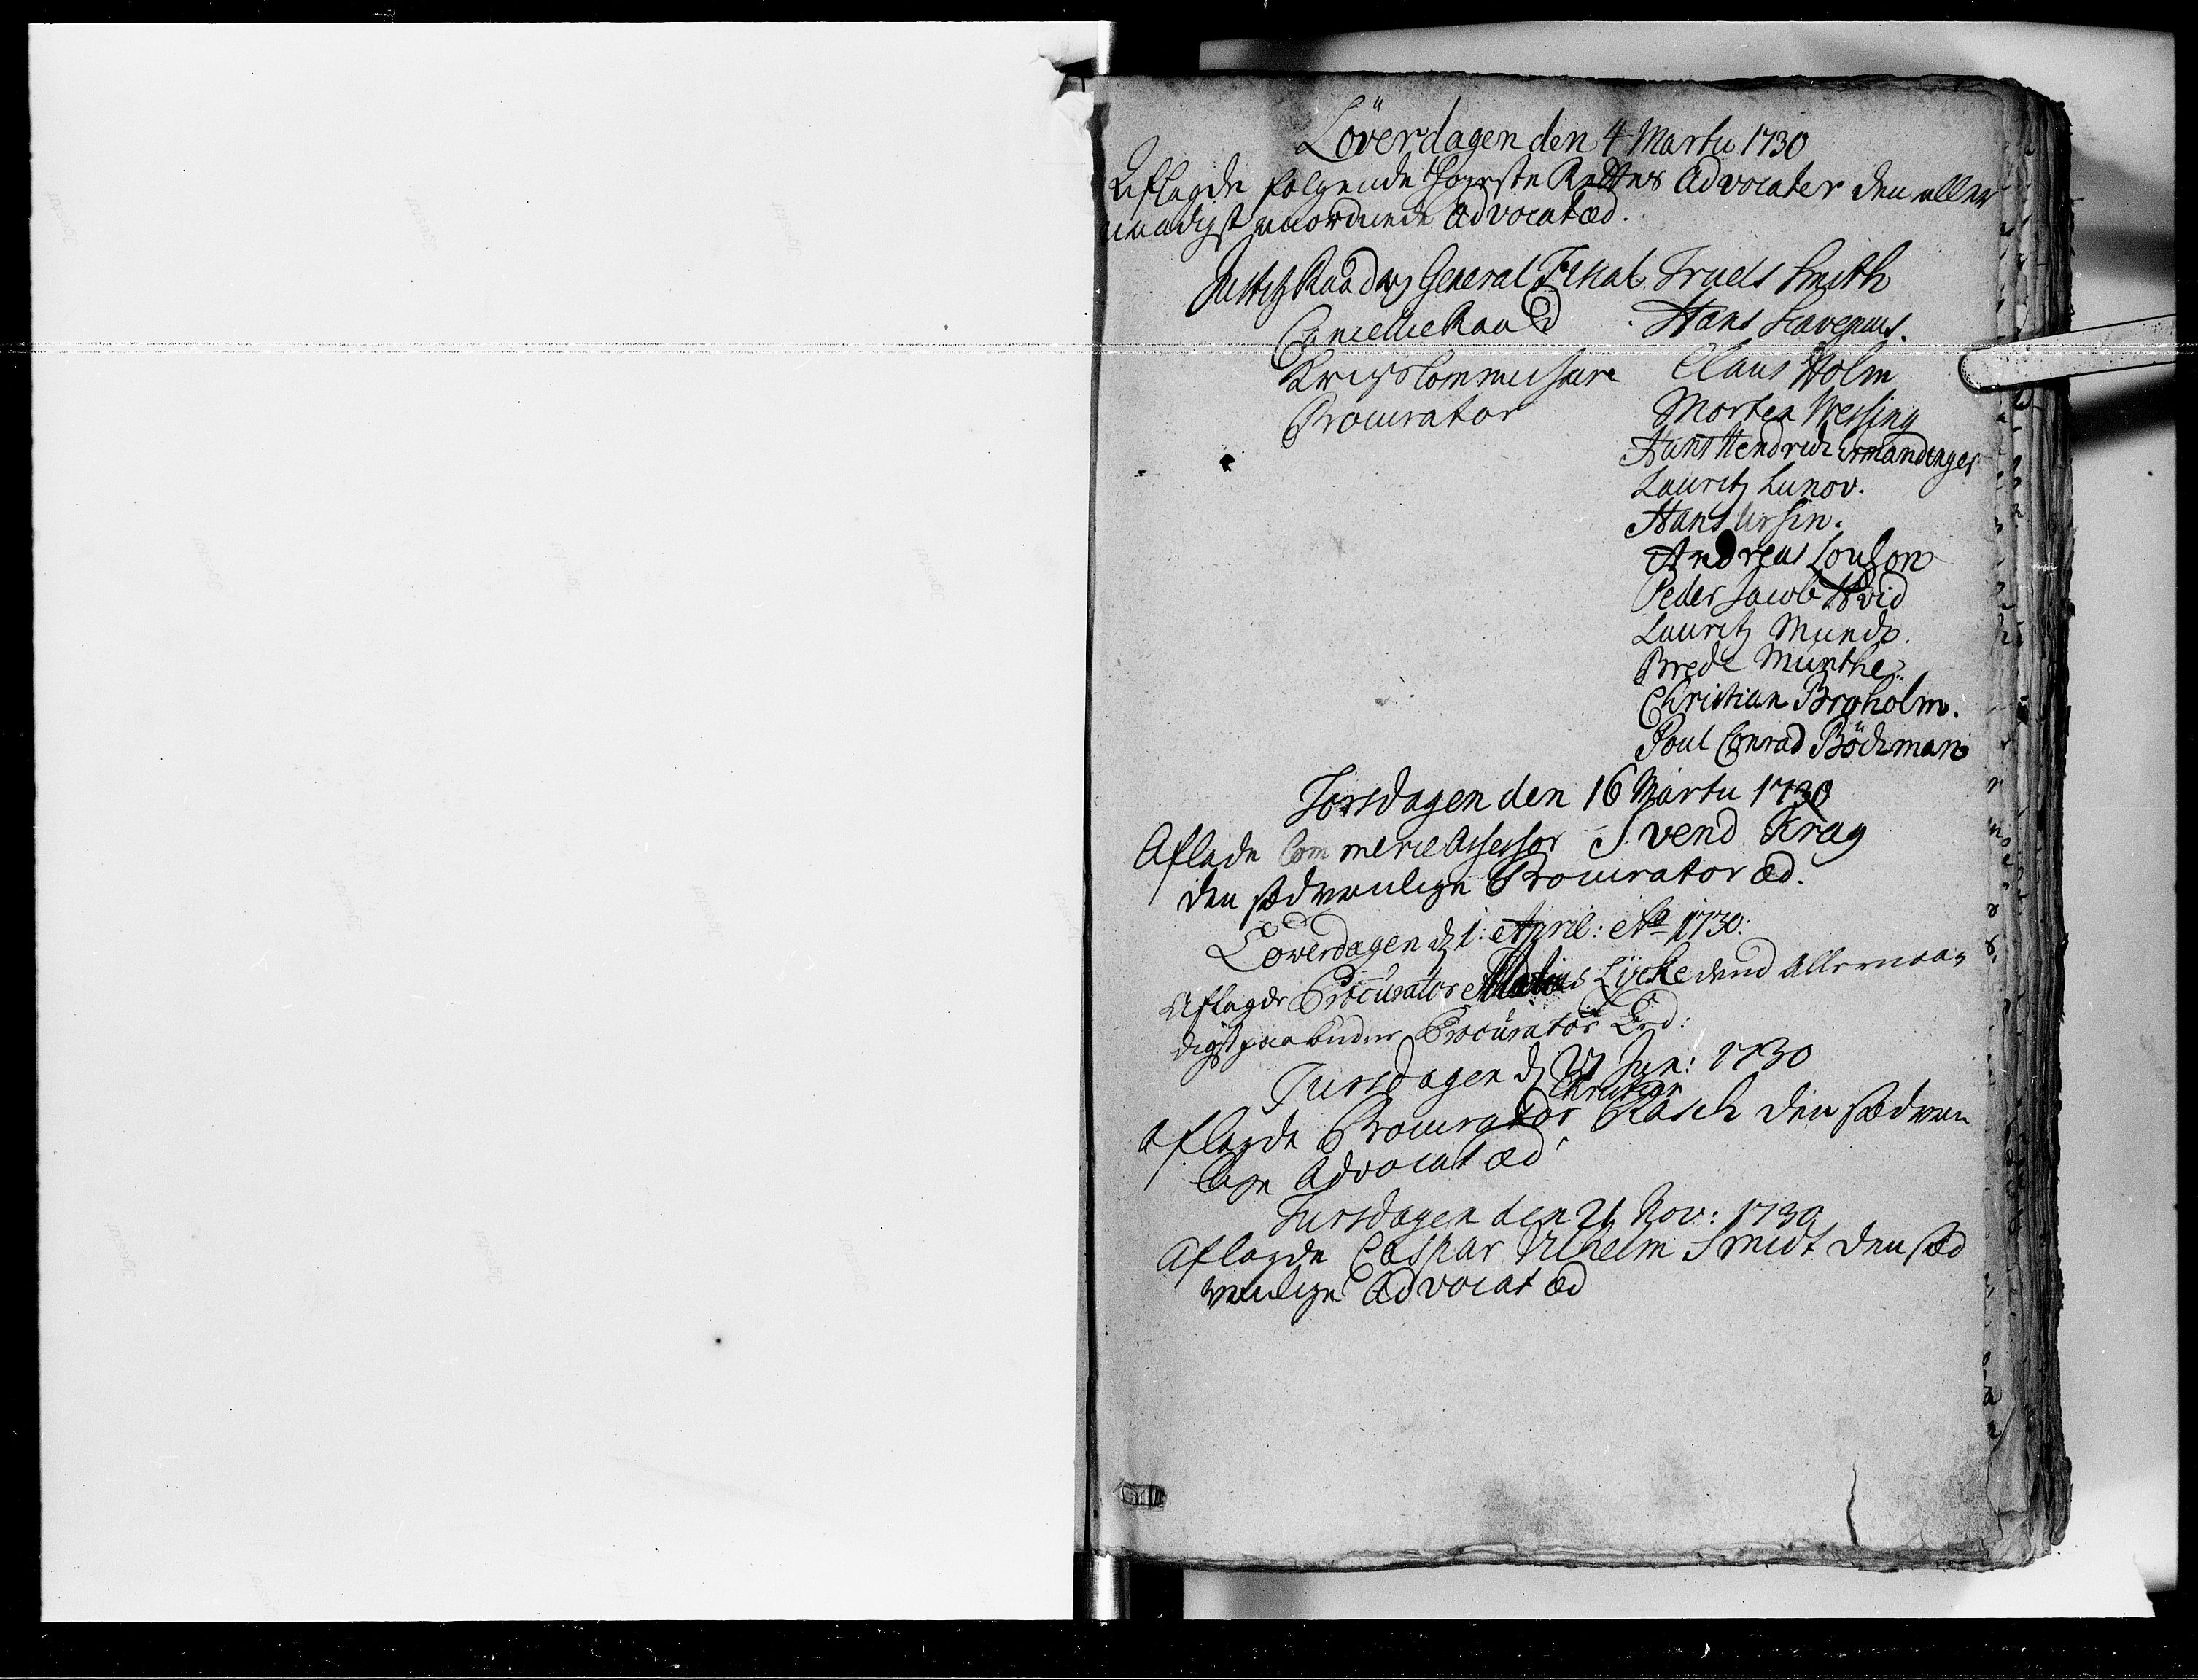 Löverdagen den 4 Martii 1730
Aflagde følgende Høyeste Rettes Advocater den aller
naadigst anordnede Advocat æd.
Justitz Raad og General Fiskal Truels Smith
Cancellie Raad Hans Scavenius.
Krigs Commissaire Claus Holm
Procurator Morten Wessing
Hans Hendrich Ermandinger
Lauritz Lunov.
Hans Ursin.
Andreas Louson
Peder Jacob Hvid
Lauritz Mundt.
Brede Munthe.
Christian Broholm.
Poul Conrad Böckman
Torsdagen den 16 Martii 1730
Aflade Commerce Assessor Svend Krag
den sædvanlige Procurator æd.
Löwerdagen d 1: April: Ao 1730:
Aflagde Procurator Lycke dend Allernaa-
digst paabudne Procurator Eed:
Tirsdagen d 27 Jun: 1730
Christian
aflagde Procurator Rasch den sædvan
lige Advocat æd
Tirsdagen den 21 Nov: 1730
Aflagde Caspar Vilhelm Smidt den sæd
vanlige Advocat æd